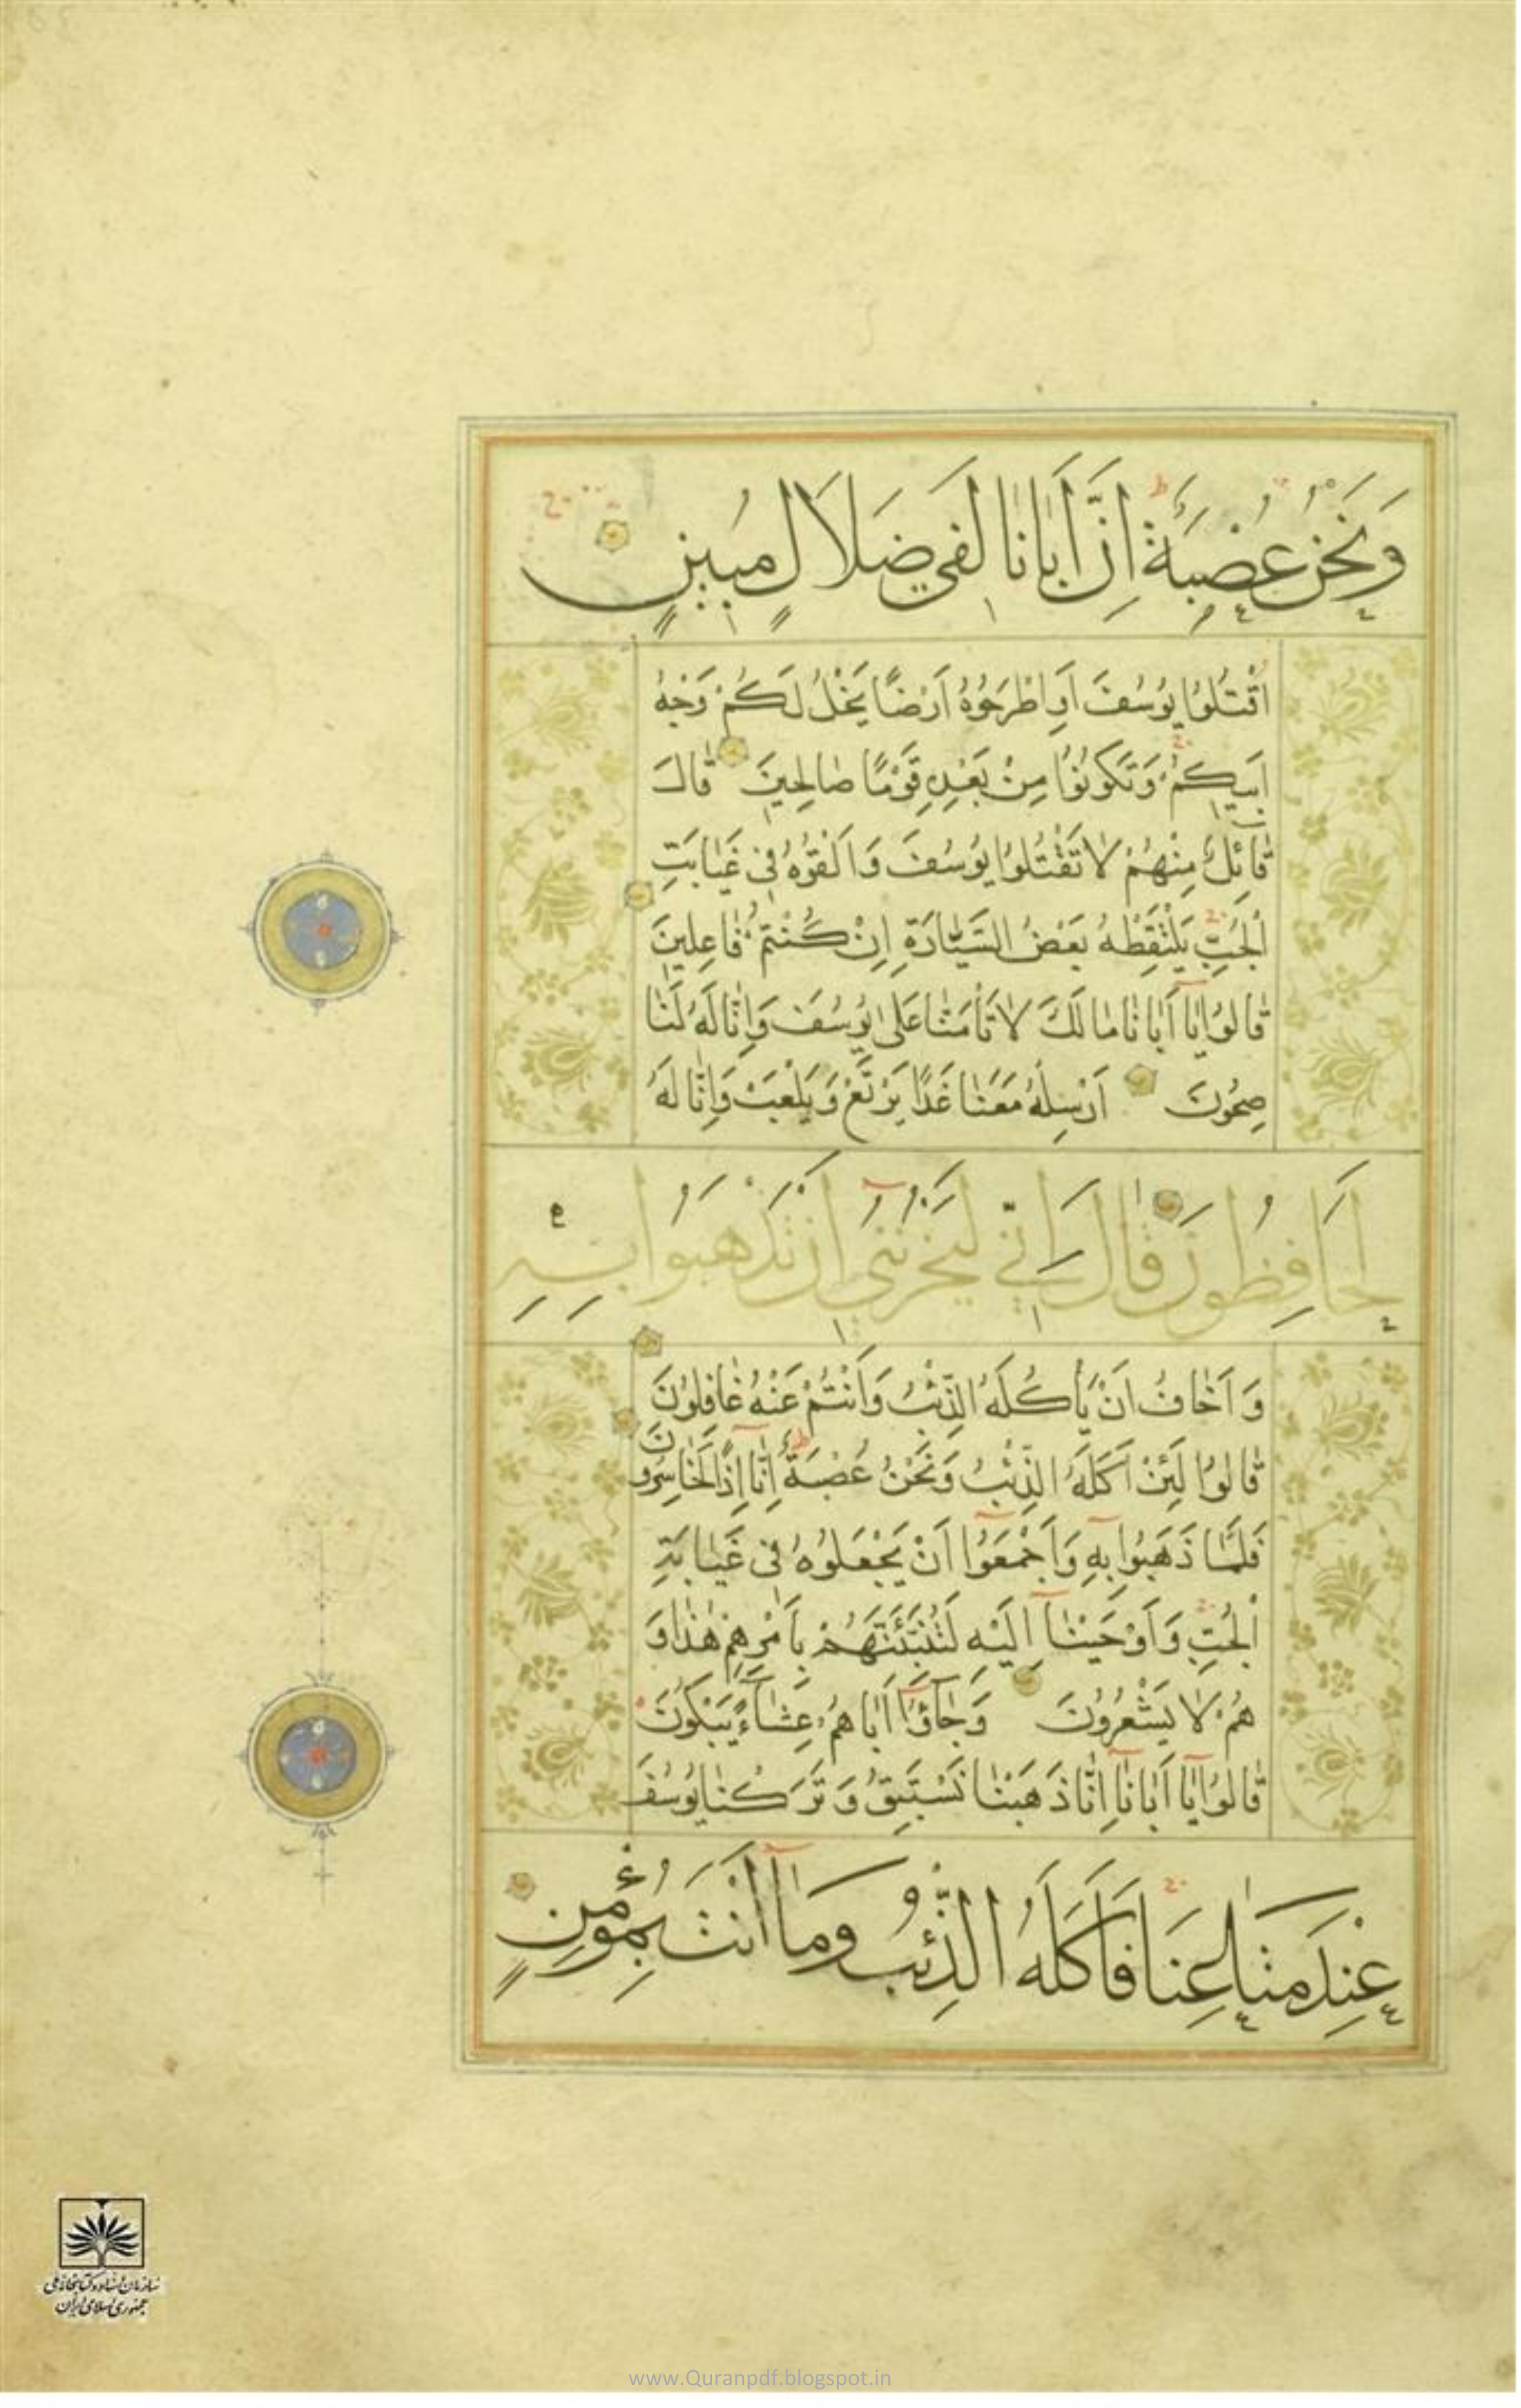 وَنَحْنُ عُصْبَةٌ اِنَّ اَبَانَا لَفِي ضَلَالٍ مُبِينٍ
اقْتُلُوا يُوسُفَ اَوِ اطْرَحُوهُ اَرْضًا يَخْلُ لَكُمْ وَجْهُ
اَبِيكُمْ وَتَكُونُوا مِنْ بَعْدِهِ قَوْمًا صَالِحِينَ قَالَ
قَائِلٌ مِنْهُمْ لَا تَقْتُلُوا يُوسُفَ وَاَلْقُوهُ فِي غَيَابَتِ
الْجُبِّ يَلْتَقِطْهُ بَعْضُ السَّيَّارَةِ اِنْ كُنْتُمْ فَاعِلِينَ
قَالُوا يَا اَبَانَا مَا لَكَ لَا تَأْمَنَّا عَلَى يُوسُفَ وَاِنَّا لَهُ لَنَا
صِحُونَ اَرْسِلْهُ مَعَنَا غَدًا يَرْتَعْ وَيَلْعَبْ وَاِنَّا لَهُ
لَحَافِظُونَ قَالَ اِنِّي لَيَحْزُنُنِي اَنْ تَذْهَبُوا بِهِ
وَاَخَافُ اَنْ يَأْكُلَهُ الذِّئْبُ وَاَنْتُمْ عَنْهُ غَافِلُونَ
قَالُوا لَئِنْ اَكَلَهُ الذِّئْبُ وَنَحْنُ عُصْبَةٌ اِنَّا اِذًا لَخَاسِرُونَ
فَلَمَّا ذَهَبُوا بِهِ وَاَجْمَعُوا اَنْ يَجْعَلُوهُ فِي غَيَابَةِ
الْجُبِّ وَاَوْحَيْنَا اِلَيْهِ لَتُنَبِّئَنَّهُمْ بِاَمْرِهِمْ هَذَا وَ
هُمْ لَا يَشْعُرُونَ وَجَاؤُا اَبَاهُمْ عِشَاءً يَبْكُونَ
قَالُوا يَا اَبَانَا اِنَّا ذَهَبْنَا نَسْتَبِقُ وَتَرَكْنَا يُوسُفَ
عِنْدَ مَتَاعِنَا فَاَكَلَهُ الذِّئْبُ وَمَا اَنْتَ بِمُؤْمِنٍ
سازمان اسناد و کتابخانه ملی
جمهوری اسلامی ایران
www.Quranpdf.blogspot.in